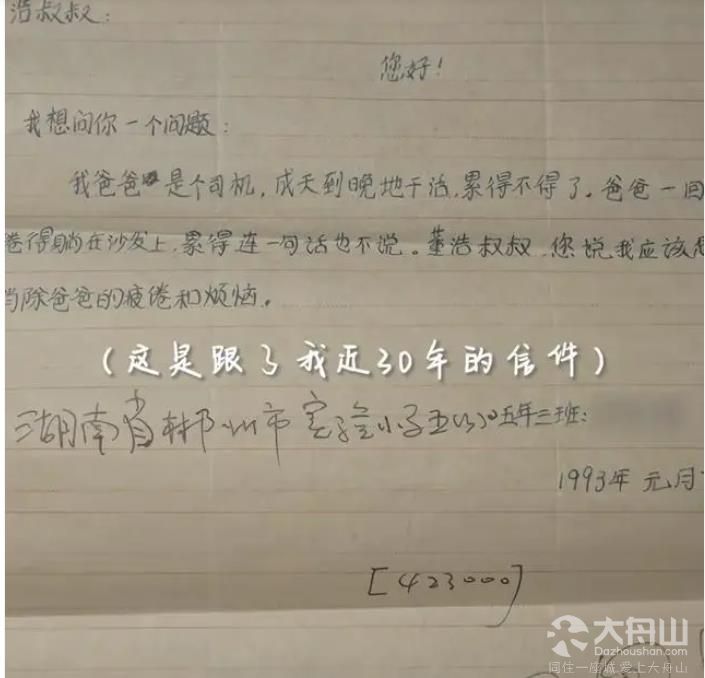 浩叔叔:
您好!
我想问你一个问题:
我爸爸是个司机,成天到晚地干活,累得不得了。爸爸一回
卷得躺在沙发上,累得连一句话也不说。董浩叔叔,您说,我应该怎
当除爸爸的疲倦和烦恼。
(这是跟了我近30年的信件)
湖南省郴州市实验小学五(3) 五年三班:
1993年元月
[423000]
大舟山
Dazhoushan.com
同住一座城,爱上大舟山